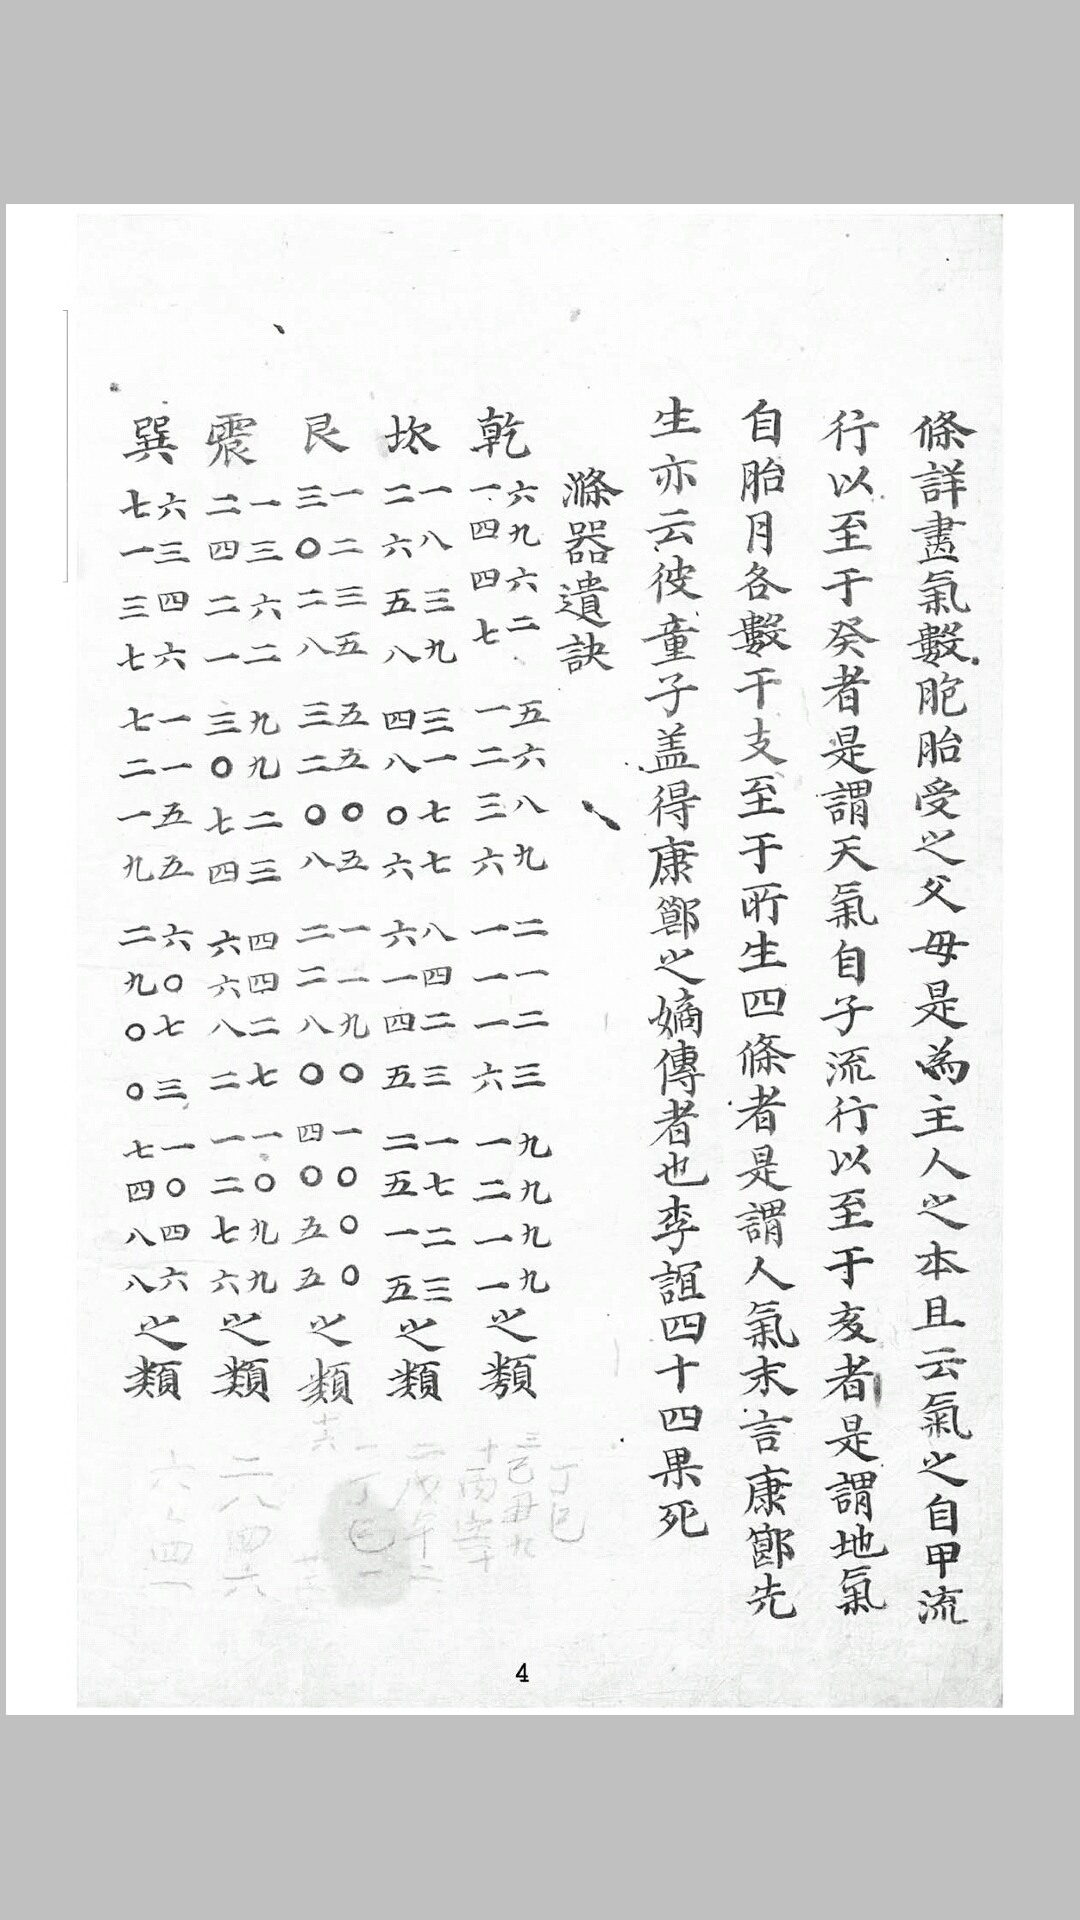 條詳盡氣數胞胎受之父母是為主人之本且云氣之自甲流
行以至于癸者是謂天氣自子流行以至于亥者是謂地氣
自胎月各數干支至于所生四條者是謂人氣末言康節先
生亦云彼童子盖得康節之嫡傳者也李誼四十四果死
滌器遺訣
乾 六九六二 五六八九 二一二三 九九九九
一四四七 一二三六 一一一六 一二一一 之類
坎 一八三九 三一七七 八四二三 一七二三
二六五八 四八〇六 六一四五 二五一五 之類
艮 一二三五 五五〇五 一一九〇 一〇〇〇
三〇二八 三二〇八 二二八〇 四〇五五 之類
震 一三六二 九九二三 四四二七 一〇九九
二四二一 三〇七四 六六八二 一二七六 之類
巽 六三四六 一一五五 六〇七三 一〇四六
七一三七 七二一九 二九〇〇 七四八八 之類
丁巳
三己丑九
十丙
一丁巳一
二八四六
4